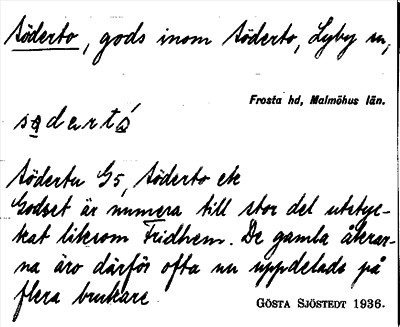 Söderto, gods inom Söderto, Lyby sn,
Frosta hd, Malmöhus län.
sødertó
Södertu G5, Söderto ek
Godset är numera till stor del utstyc-
kat liksom Fridhem. De gamla åkrar-
na äro därför ofta nu uppdelade på
flera brukare.
GÖSTA SJÖSTEDT 1936.